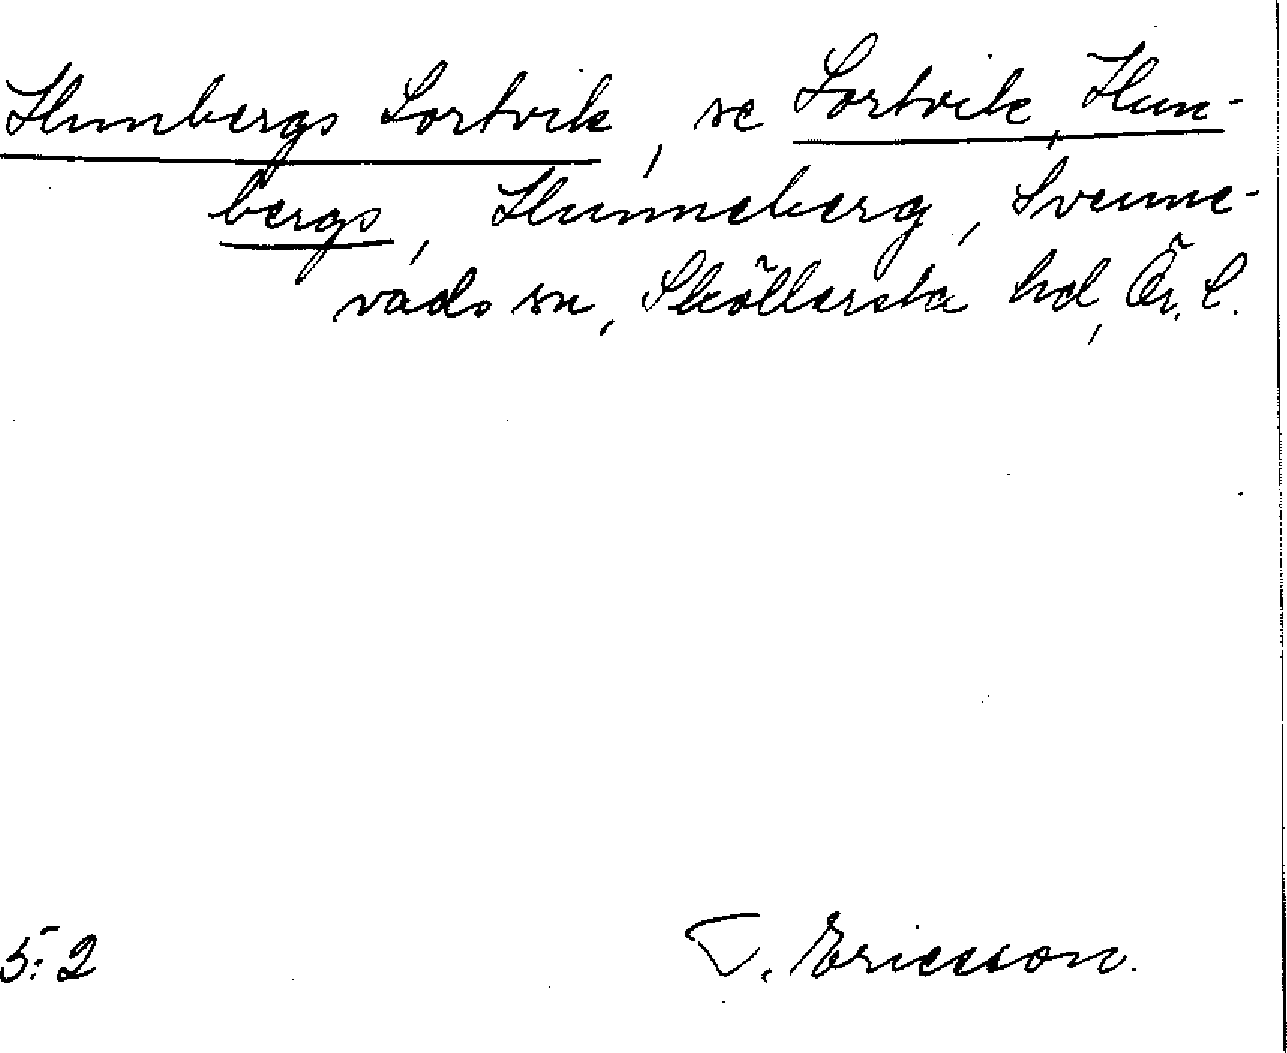 Hunbergs Sortvik, se Sortvik, Hun-
bergs, Hunneberg, Svenne-
vads sn, Sköllersta hd, Ör. l.
5:2
T. Ericsson.